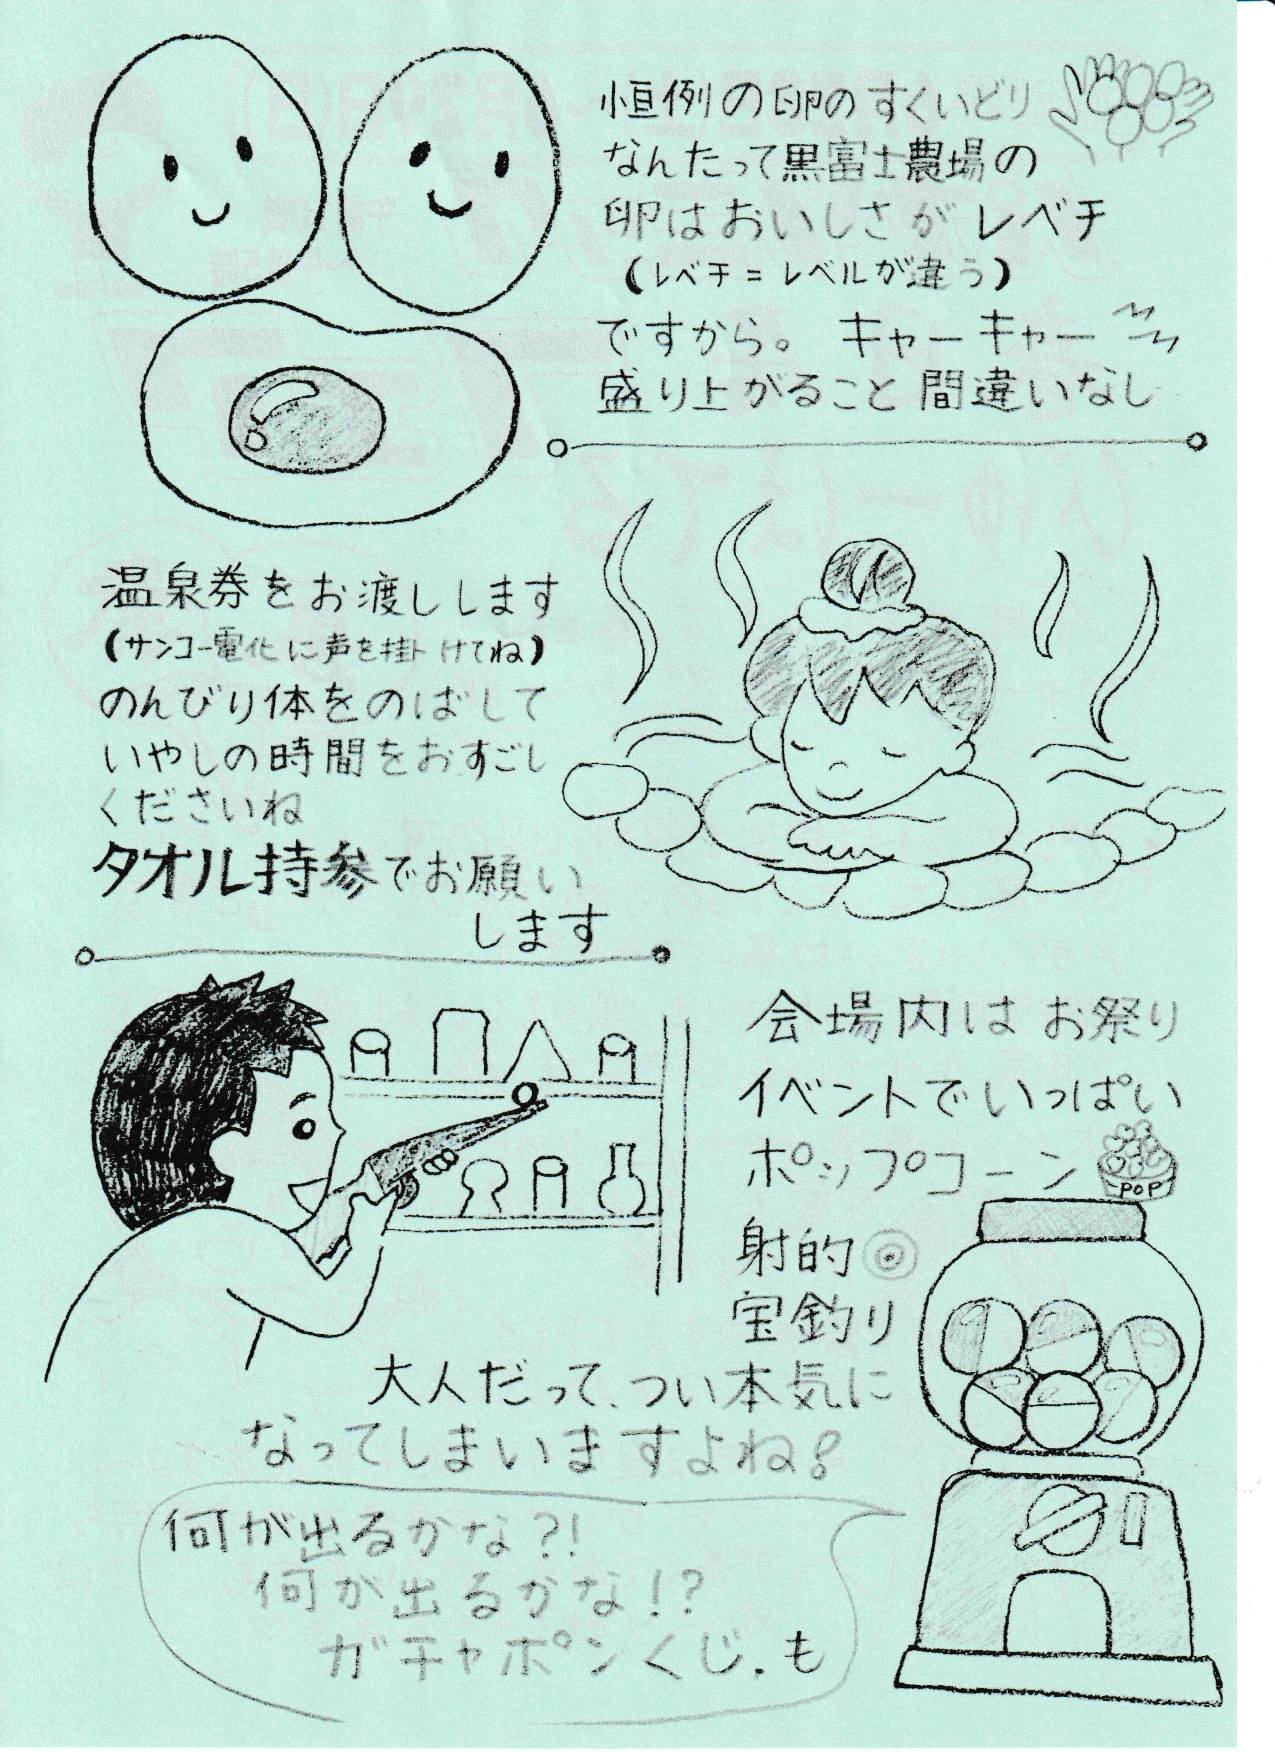 恒例の卵のすくいどり
なんたって黒富士農場の
卵はおいしさがレベチ
(レベチ=レベルが違う)
ですから。キャーキャー
盛り上がること間違いなし
温泉券をお渡しします
(サンコー電化に声を掛けてね)
のんびり体をのばして
いやしの時間をおすごし
くださいね
タオル持参でお願い
します
会場内はお祭り
イベントでいっぱい
ポップコーン
POP
射的
宝釣り
大人だって、つい本気に
なってしまいますよね!
何が出るかな?!
何が出るかな!?
ガチャポンくじ、も